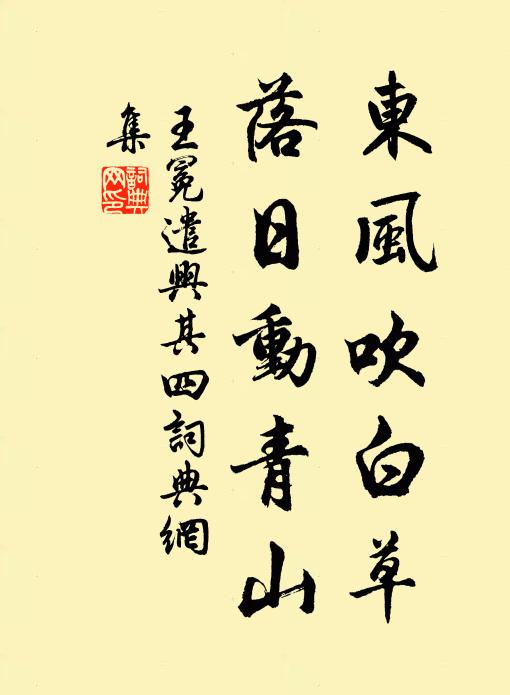 東風吹白草
落日動青山
王冕遣興其四詞典網
集
詞典
網印